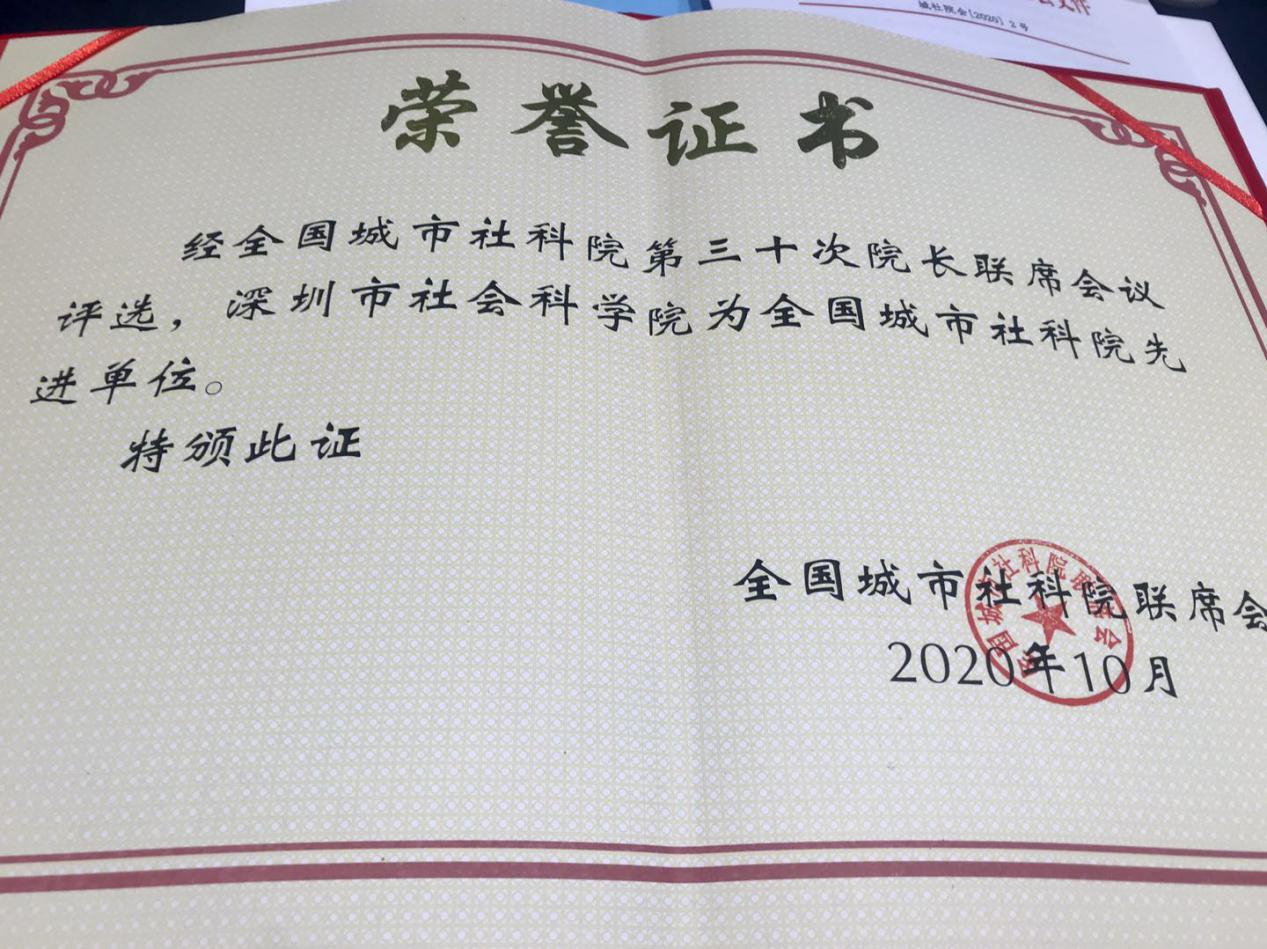 会文件
城社院会[2020] 2号
荣誉证书
经全国城市社科院第三十次院长联席会议
评选，深圳市社会科学院为全国城市社科院先
进单位。
特颁此证
全国城市社科院联席会
2020年10月